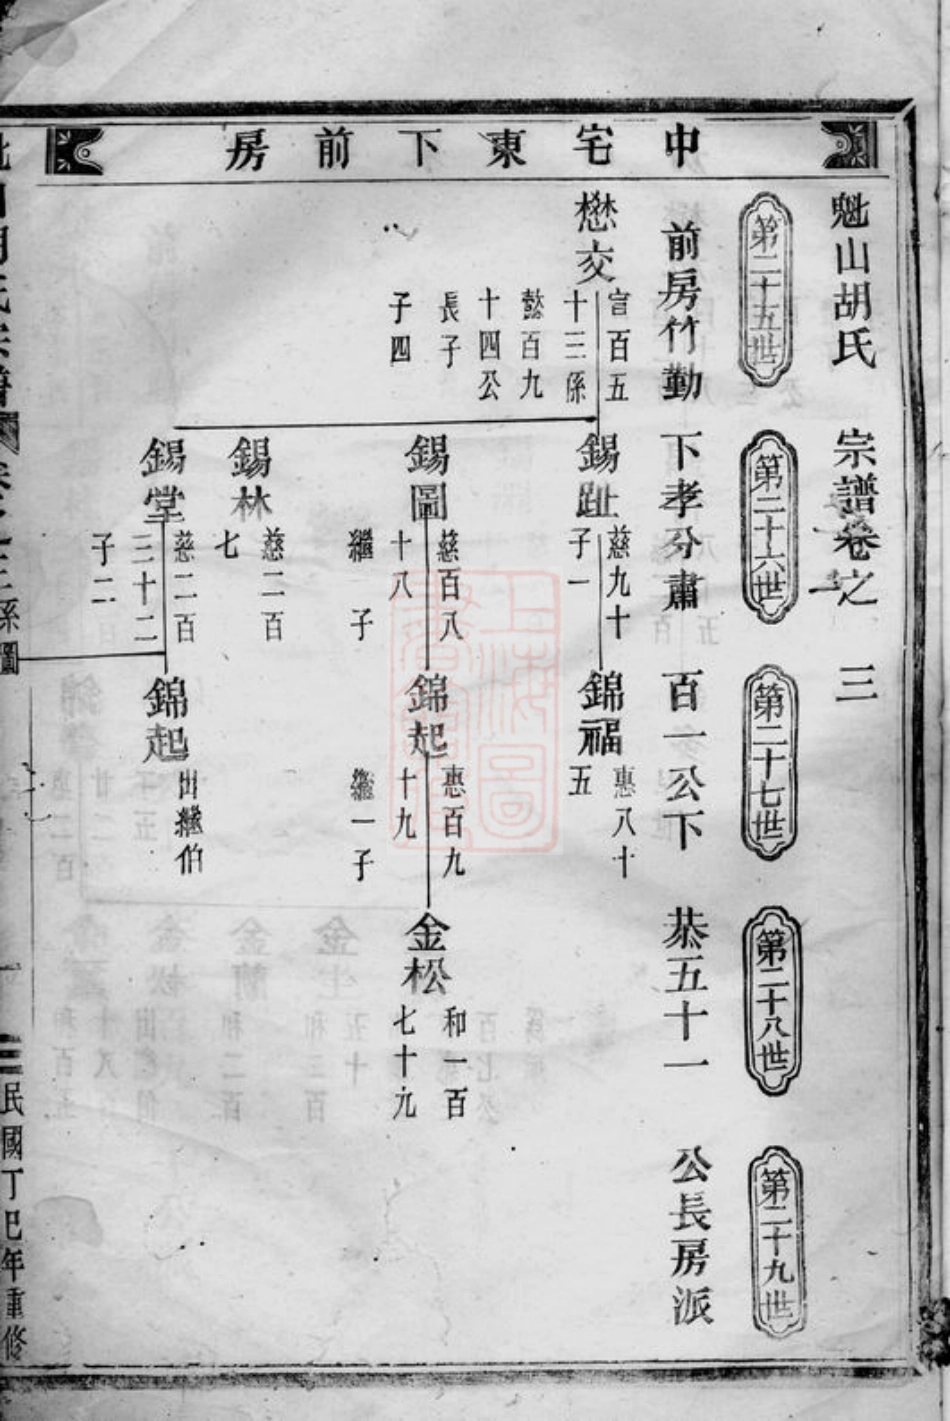 中宅東下前房
魁山胡氏 宗譜卷之 三
第二十五世
第二十六世
第二十七世
第二十八世
第二十九世
前房竹勤 下孝分肅 百一公下 恭五十一 公長房派
懋交
宣百五
十三係
懿百九
十四公
長子
子四
錫趾
慈九十
子一
錦福
惠八十
五
錫圖
慈百八
十八
繼子
錦起
惠百九
十九
繼一子
金松
和一百
七十九
錫林
慈二百
七
錫堂
慈二百
三十二
子二
錦起
出繼伯
民國丁巳年重修